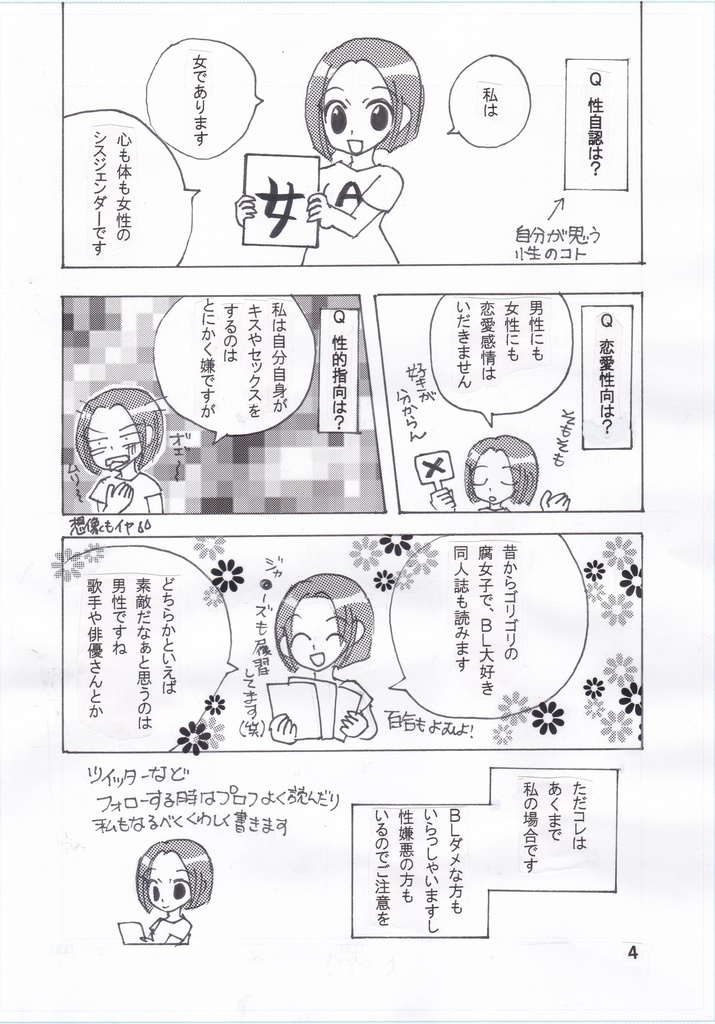 Q 性自認は？
自分が思う
性のコト
私は
女であります
女
A
心も体も女性の
シスジェンダーです
Q 恋愛性向は？
男性にも
女性にも
恋愛感情は
いだきません
好きが
分からん
Q 性的指向は？
私は自分自身が
キスやセックスを
するのは
とにかく嫌ですが
オェ〜
ムリ〜
想像もイヤ
昔からゴリゴリの
腐女子で、ＢＬ大好き
同人誌も読みます
百合もよむよ！
ジャ●ーズも履習
してます(笑)
どちらかといえば
素敵だなぁと思うのは
男性ですね
歌手や俳優さんとか
ただコレは
あくまで
私の場合です
ＢＬダメな方も
いらっしゃいますし
性嫌悪の方も
いるのでご注意を
ツイッターなど
フォローする時はプロフよく読んだり
私もなるべくくわしく書きます
4